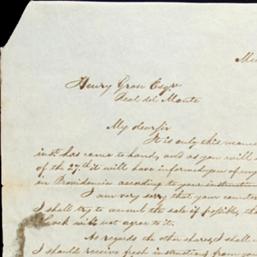 Me
Henry Grow Esqr
Real del Monte
My dear Sir
It is only this
inst has come to hand, and as you will
of the 27th it will have informed you of my
in Providencia according to your instructions
I am very sorry that your
I shall try to annul the sale if possible, tho
think will not agree to it.
As regards the other shares, I shall
I should receive fresh instructions from you